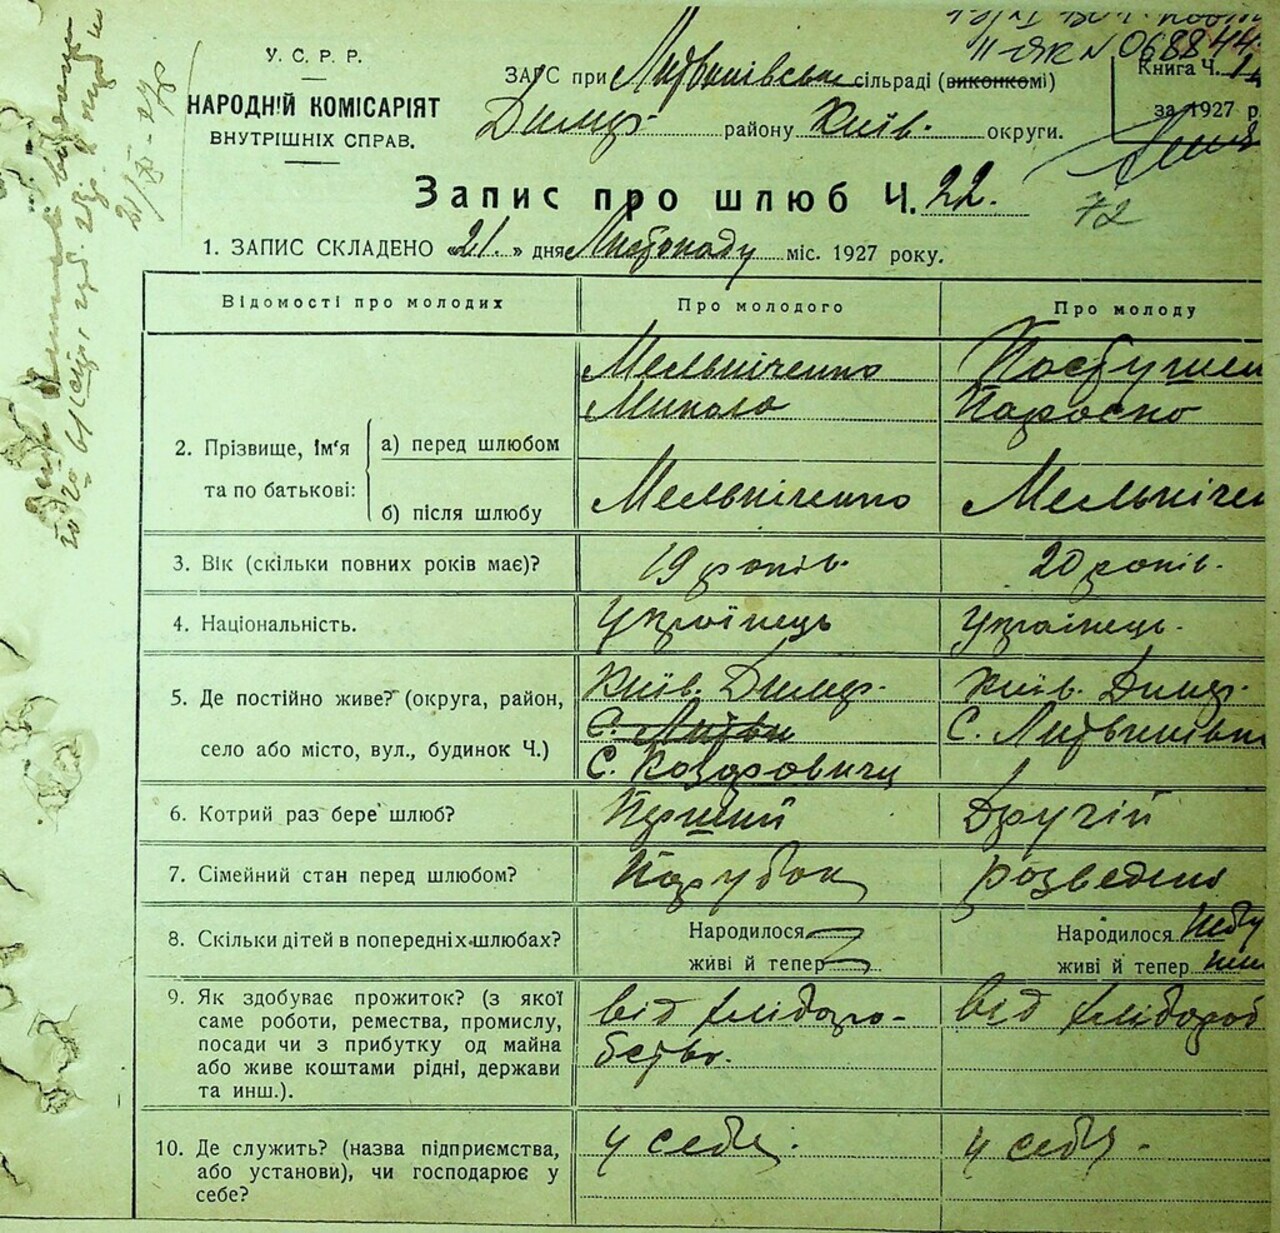 II-ЯК N 068844
У. С. Р. Р.
НАРОДНІЙ КОМІСАРІЯТ
ВНУТРІШНІХ СПРАВ.
ЗАГС при Литвинівськ сільраді (виконкомі)
Димер району Київ. округи.
Книга Ч. 1
за 1927 р
Запис про шлюб Ч. 22.
72
1. ЗАПИС СКЛАДЕНО «21.» дня Листопаду міс. 1927 року.
Відомості про молодих
Про молодого
Про молоду
2. Прізвище, ім'я
та по батькові:
а) перед шлюбом
Мельніченко
Микола
Параска
б) після шлюбу
Мельніченко
Мельнічен
3. Вік (скільки повних років має)?
19 років.
20 років.
4. Національність.
Українець
Українець.
5. Де постійно живе? (округа, район,
село або місто, вул., будинок Ч.)
Київ. Димер.
С. Литви
С. Козаровичи
Київ. Димер.
С. Литвинівк
6. Котрий раз бере шлюб?
Перший
Другій
7. Сімейний стан перед шлюбом?
Парубок
розведена
8. Скільки дітей в попередніх шлюбах?
Народилося
живі й тепер
Народилося
живі й тепер
9. Як здобуває прожиток? (з якої
саме роботи, ремества, промислу,
посади чи з прибутку од майна
або живе коштами рідні, держави
та инш.).
від хліборо-
бства.
від хлібороб
10. Де служить? (назва підприємства,
або установи), чи господарює у
себе?
у себе.
у себе.